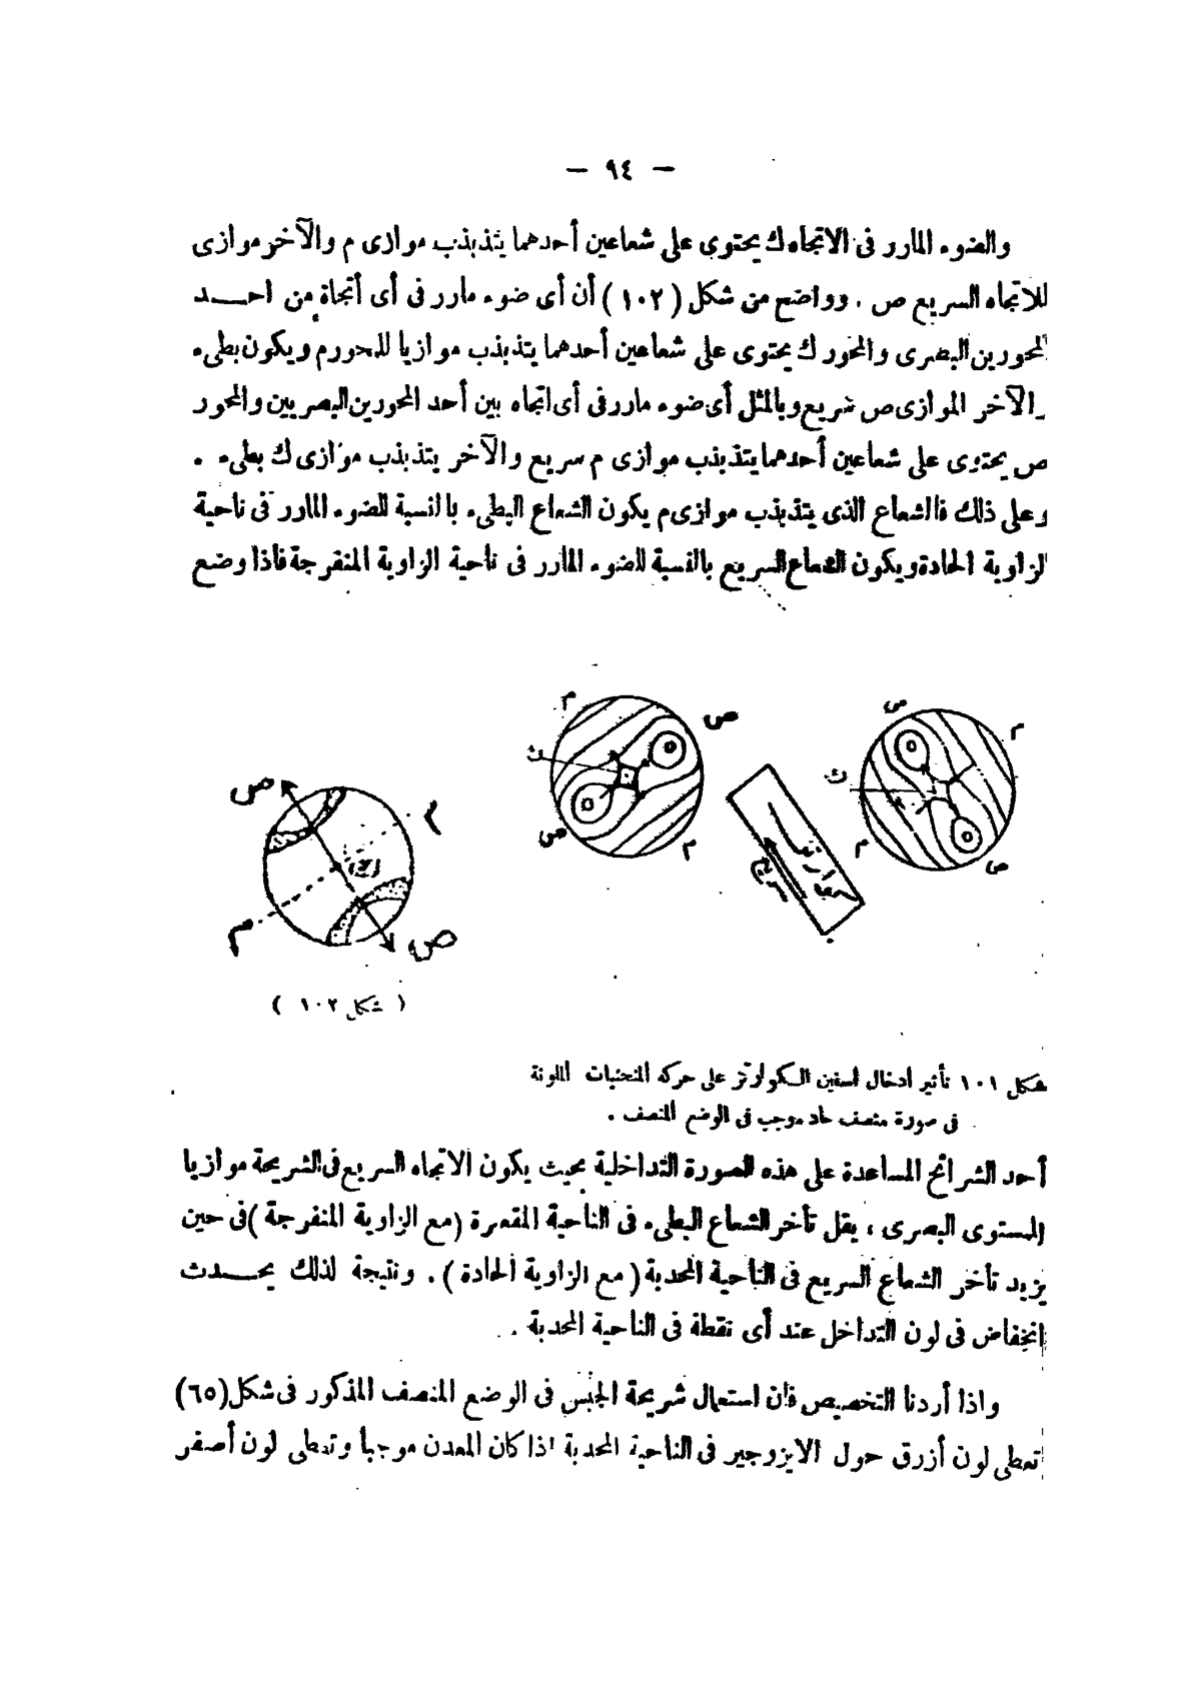 — ٩٤ —
والضوء المارر فى الاتجاه ك يحتوى على شعاعين أحدهما يتذبذب موازى م والآخر موازى
للاتجاه السريع ص . وواضح من شكل ( ١٠٢ ) أن أى ضوء مارر فى أى أتجاة من احـــد
المحورين البصرى والمحور ك يحتوى على شعاعين أحدهما يتذبذب موازيا للمحور م ويكون بطىء
والآخر الموازى ص شريع وبالمثل أى ضوء مارر فى أى اتجاه بين أحد المحورين البصريين والمحور
ص يحتوى على شعاعين أحدهما يتذبذب موازى م سريع والآخر يتذبذب موازى ك بطىء .
وعلى ذلك فالشعاع الذى يتذبذب موازى م يكون الشعاع البطىء بالنسبة للضوء المارر فى ناحية
الزاوية الحادة ويكون الشعاع السريع بالنسبة للضوء المارر فى ناحية الزاوية المنفرجة فاذا وضع
م ص ك ص م
ص م ك م ص
كوارتز سريع
ص م (ك) م ص
( شكل ١٠٢ )
شكل ١٠١ تأثير ادخال اسفين الكوارتز على حركه المنحنيات الملونة
فى صورة منصف حاد موجب فى الوضع المنصف .
أحد الشرائح المساعدة على هذه الصورة التداخلية بحيث يكون الاتجاه السريع فى الشريحة موازيا
للمستوى البصرى ، يقل تأخر الشعاع البطىء فى الناحية المقعرة (مع الزاوية المنفرجة ) فى حين
يزيد تأخر الشعاع السريع فى الناحية المحدبة ( مع الزاوية الحادة ) . ونتيجة لذلك يحـــدث
انخفاض فى لون التداخل عند أى نقطة فى الناحية المحدبة .
واذا أردنا التخصيص فان استعمال شريحة الجبس فى الوضع المنصف المذكور فى شكل (٦٥)
تعطى لون أزرق حول الايزوجير فى الناحية المحدبة اذا كان المعدن موجبا وتعطى لون أصفر